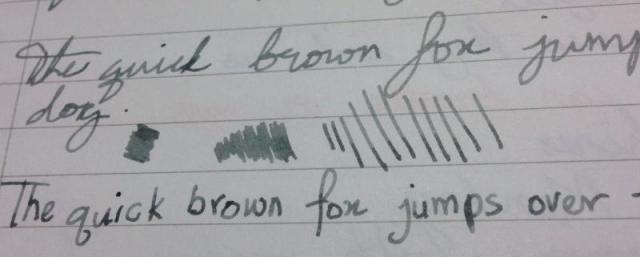 The quick brown fox jump
dog.
The quick brown fox jumps over